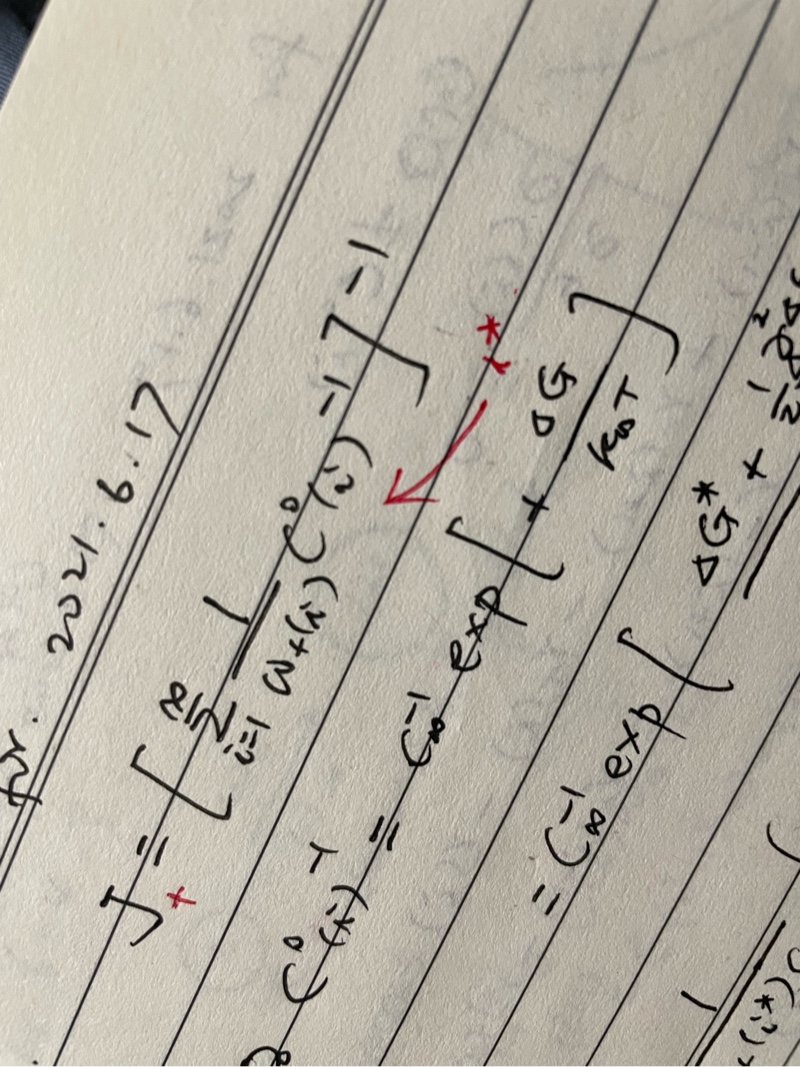 fur. 2021.6.17
J+ = [ ∞ Σ i=1 1 / ω+(i) C⁰(i)⁻¹ ]⁻¹
i*
C⁰(i)⁻¹ = C∞⁻¹ exp [ + ΔG / k_B T ]
= C∞⁻¹ exp [ ΔG* + 1/2
1 / (i*)